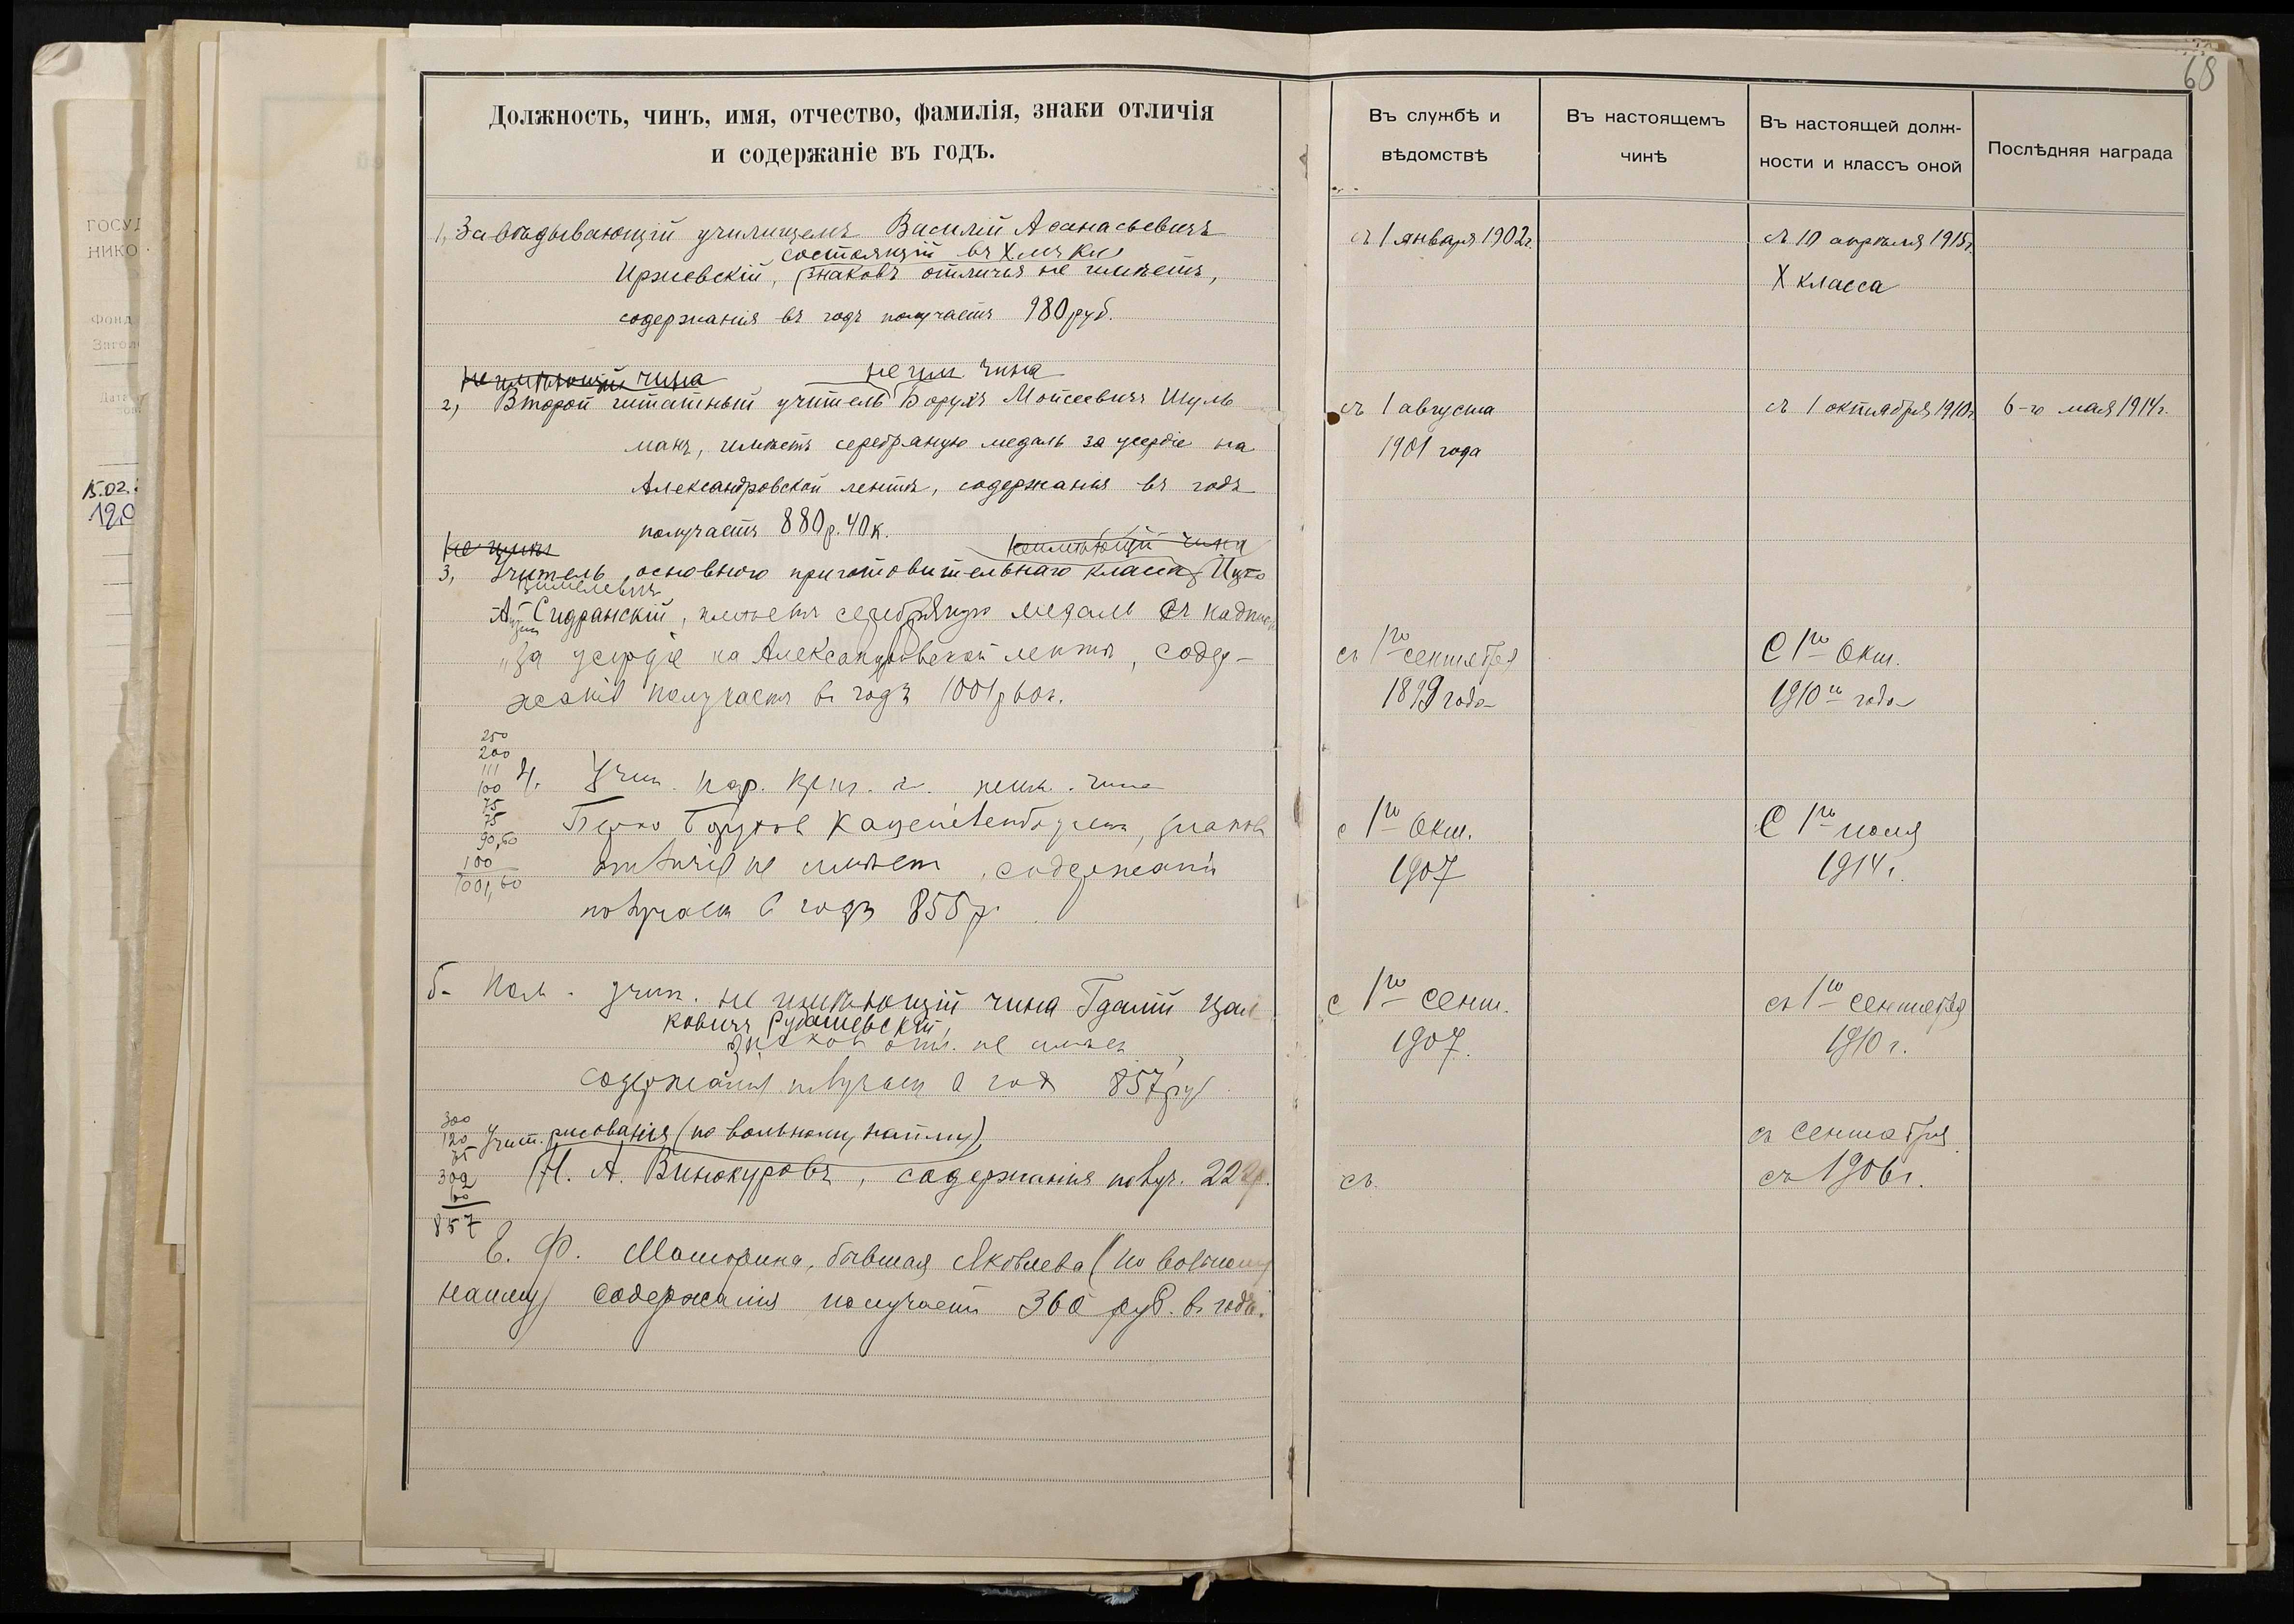 68
Должность, чинъ, имя, отчество, фамилія, знаки отличія
и содержаніе въ годъ.
Въ службѣ и
вѣдомствѣ
Въ настоящемъ
чинѣ
Въ настоящей долж-
ности и классъ оной
Послѣдняя награда
ГОСУД
НИКО
Фонд
Загол
Дата
15.02.
1, Завѣдывающій училищемъ Василій Аѳанасьевичъ
состоящій въ X
Иржевскій, знаковъ отличія не имѣетъ,
содержанія въ годъ получаетъ 980 руб.
съ 1 января 1902 г.
съ 10 апрѣля 1915 г.
X класса
не имѣющій чина не им. чина
2, Второй штатный учитель Борухъ Мойсеевичъ Шуль
манъ, имѣетъ серебряную медаль за усердіе на
Александровской лентѣ, содержанія въ годъ
получаетъ 880 р. 40 к.
съ 1 августа
1901 года
съ 1 октября 1910 г.
6-го мая 1914 г.
неимѣющій чина
3, Учитель основного приготовительнаго класса Ицко
Сидранскій, имѣетъ серебряную медаль съ надпис
„За усердіе на Александровской лентѣ, содер-
жанія получаетъ въ годъ 1001 р 60 к.
съ 1го сентября
1899 года
С 1го Окт.
1910го года
250
200
111
100
75
75
90,60
100
1001,60
4. Учит. пар. неим. чина
Берко Борухов, знаков
отличія не имѣет, содержанія
получает в годъ 855 р.
с 1го Окт.
1907
С 1го
1914 г.
5- учит. не имѣющій чина Гдалій Цал
ковичъ Рудашевскій,
знаков отл. не имѣет,
содержанія получает в год 857 руб
с 1го Сент.
1907.
съ 1го Сентября
1910 г.
300
120
75
302
60
857
Учит. рисованія (по вольному найму)
Н. А. Винокуровъ, содержанія получ. 222 р.
съ
съ Сентября
съ 1906 г.
Е. Ф. бывшая Яковлева (по вольному
найму) содержанія получаетъ 360 руб. въ годъ.